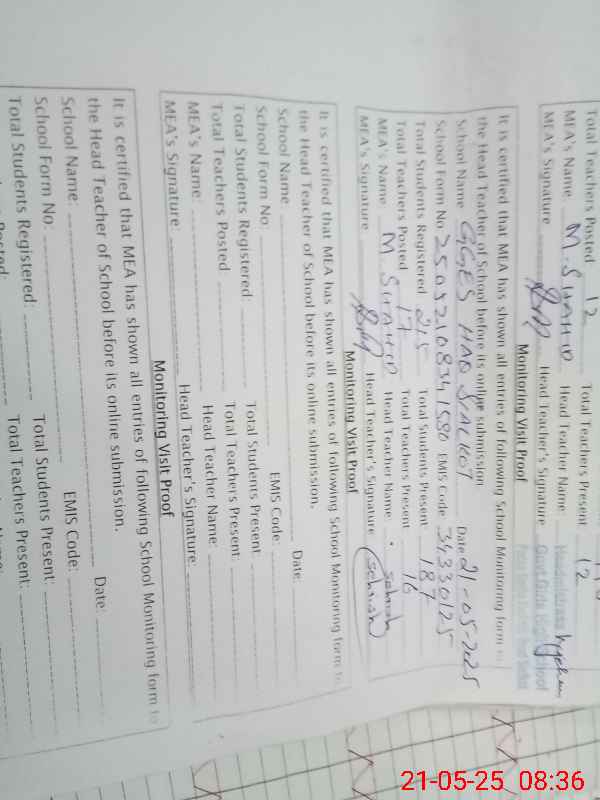 Total Teachers Posted 12 Total Teachers Present 12
MEA's Name M. SHAHID Head Teacher Name:
MEA's Signature Head Teacher's Signature
Monitoring Visit Proof
It is certified that MEA has shown all entries of following School Monitoring form to
the Head Teacher of School before its online submission.
School Name GGES HAQ SIALKOT Date 21-05-2025
School Form No 25052108341580 EMIS Code 34330125
Total Students Registered 215 Total Students Present 187
Total Teachers Posted 17 Total Teachers Present 16
MEA's Name M SHAHID Head Teacher Name
MEA's Signature Head Teacher's Signature
Monitoring Visit Proof
It is certified that MEA has shown all entries of following School Monitoring form to
the Head Teacher of School before its online submission.
School Name Date:
School Form No: EMIS Code:
Total Students Registered: Total Students Present
Total Teachers Posted Total Teachers Present:
MEA's Name: Head Teacher Name:
MEA's Signature Head Teacher's Signature:
Monitoring Visit Proof
It is certified that MEA has shown all entries of following School Monitoring form to
the Head Teacher of School before its online submission.
School Name: Date:
School Form No: EMIS Code:
Total Students Registered: Total Students Present:
Total Teachers Present:
21-05-25 08:36